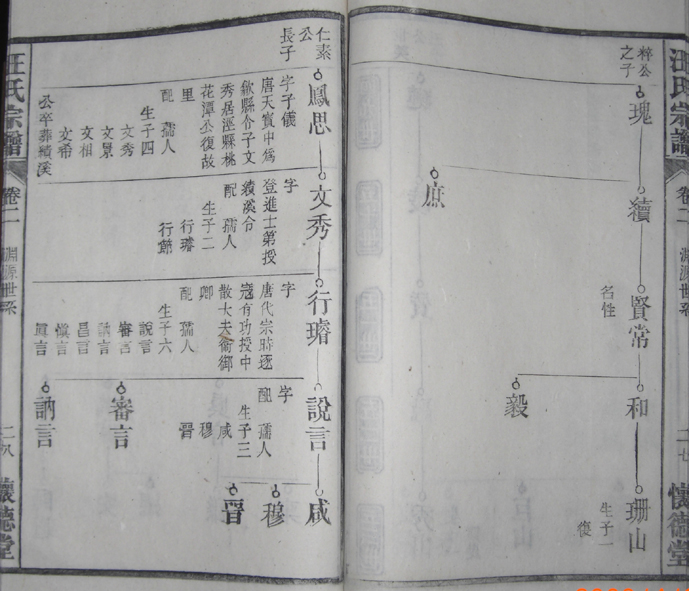 汪氏宗譜
卷二
淵源世系
二七
懷德堂
梓公
之子
瑰
續
賢常
和
珊山
名性
生子一
復
庶
毅
仁素
公
長子
鳳思
文秀
行璿
說言
咸
字子儀
唐天寶中為
歙縣令子文
秀居涇縣桃
花潭公復故
里
配 孺人
生子四
文秀
文景
文相
文希
公卒葬績溪
字
登進士第授
績溪令
配 孺人
生子二
行璿
行節
字
唐代宗時逐
寇有功授中
散大夫銜御
卿
配 孺人
生子六
說言
審言
訥言
昌言
慎言
真言
審言
訥言
字
配 孺人
生子三
咸
穆
晉
穆
晉
汪氏宗譜
卷二
淵源世系
二八
懷德堂